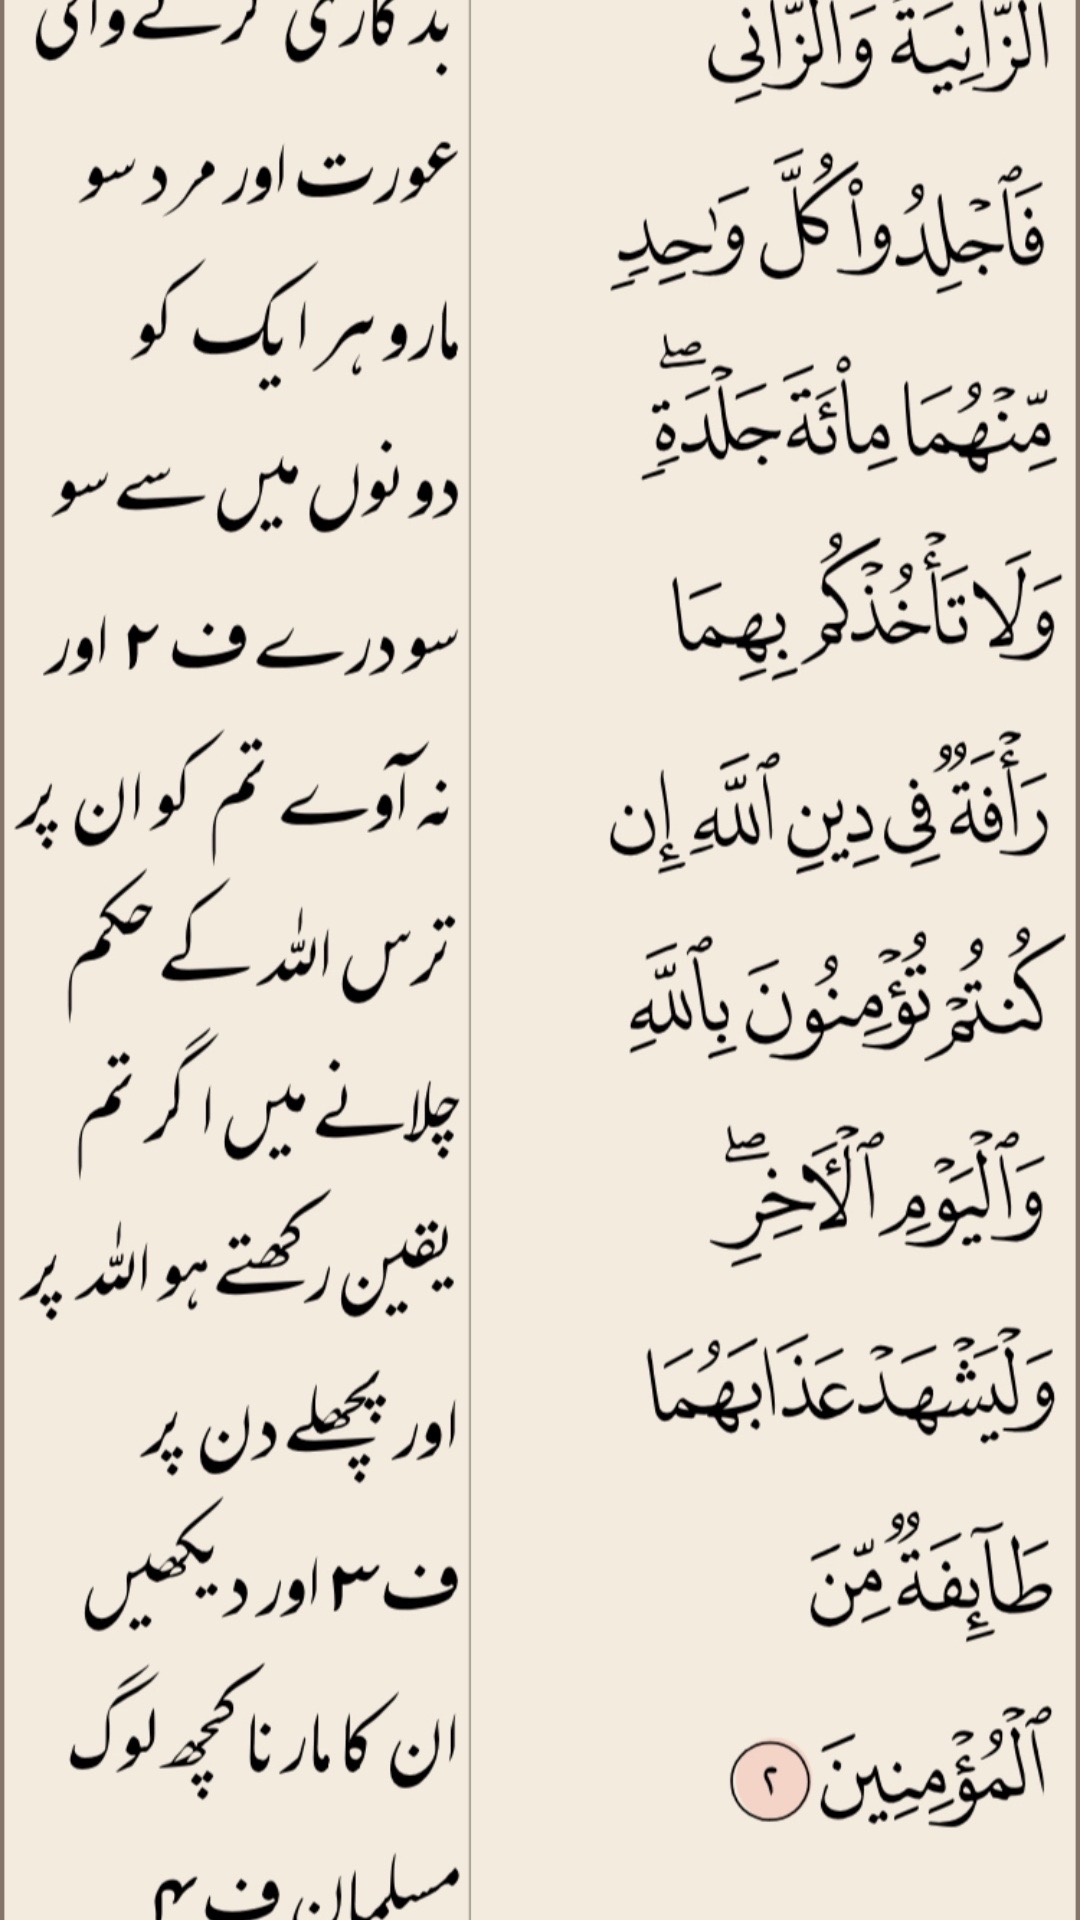 ٱلزَّانِيَةُ وَٱلزَّانِى
فَٱجْلِدُوا۟ كُلَّ وَٰحِدٍ
مِّنْهُمَا مِا۟ئَةَ جَلْدَةٍ ۖ
وَلَا تَأْخُذْكُم بِهِمَا
رَأْفَةٌ فِى دِينِ ٱللَّهِ إِن
كُنتُمْ تُؤْمِنُونَ بِٱللَّهِ
وَٱلْيَوْمِ ٱلْءَاخِرِ ۖ
وَلْيَشْهَدْ عَذَابَهُمَا
طَآئِفَةٌ مِّنَ
ٱلْمُؤْمِنِينَ ٢
بدکاری کرنے والی
عورت اور مرد سو
مارو ہر ایک کو
دونوں میں سے سو
سو درے ف ۲ اور
نہ آوے تم کو ان پر
ترس اللہ کے حکم
چلانے میں اگر تم
یقین رکھتے ہو اللہ پر
اور پچھلے دن پر
ف ۳ اور دیکھیں
ان کا مارنا کچھ لوگ
مسلمان ف ۴